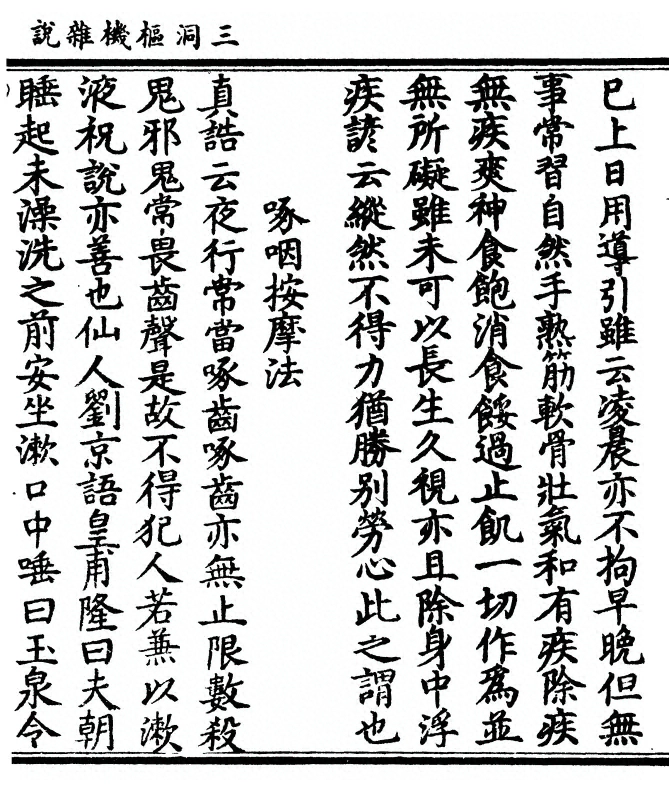 三洞樞機雜說
已上日用導引雖云凌晨亦不拘早晚但無
事常習自然手熟筋軟骨壯氣和有疾除疾
無疾爽神食飽消食餒過止飢一切作爲並
無所礙雖未可以長生久視亦且除身中浮
疾諺云縱然不得力猶勝別勞心此之謂也
啄咽按摩法
真誥云夜行常當啄齒啄齒亦無止限數殺
鬼邪鬼常畏齒聲是故不得犯人若兼以漱
液祝說亦善也仙人劉京語皇甫隆曰夫朝
睡起未澡洗之前安坐漱口中唾曰玉泉令